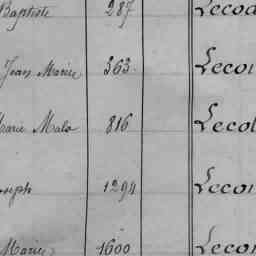 Baptiste 287 Lecoa
Jean Marie 363 Lecoi
Marie Malo 816 Lecol
oseph 1294 Lecoi
Marie 1600 Lecoi